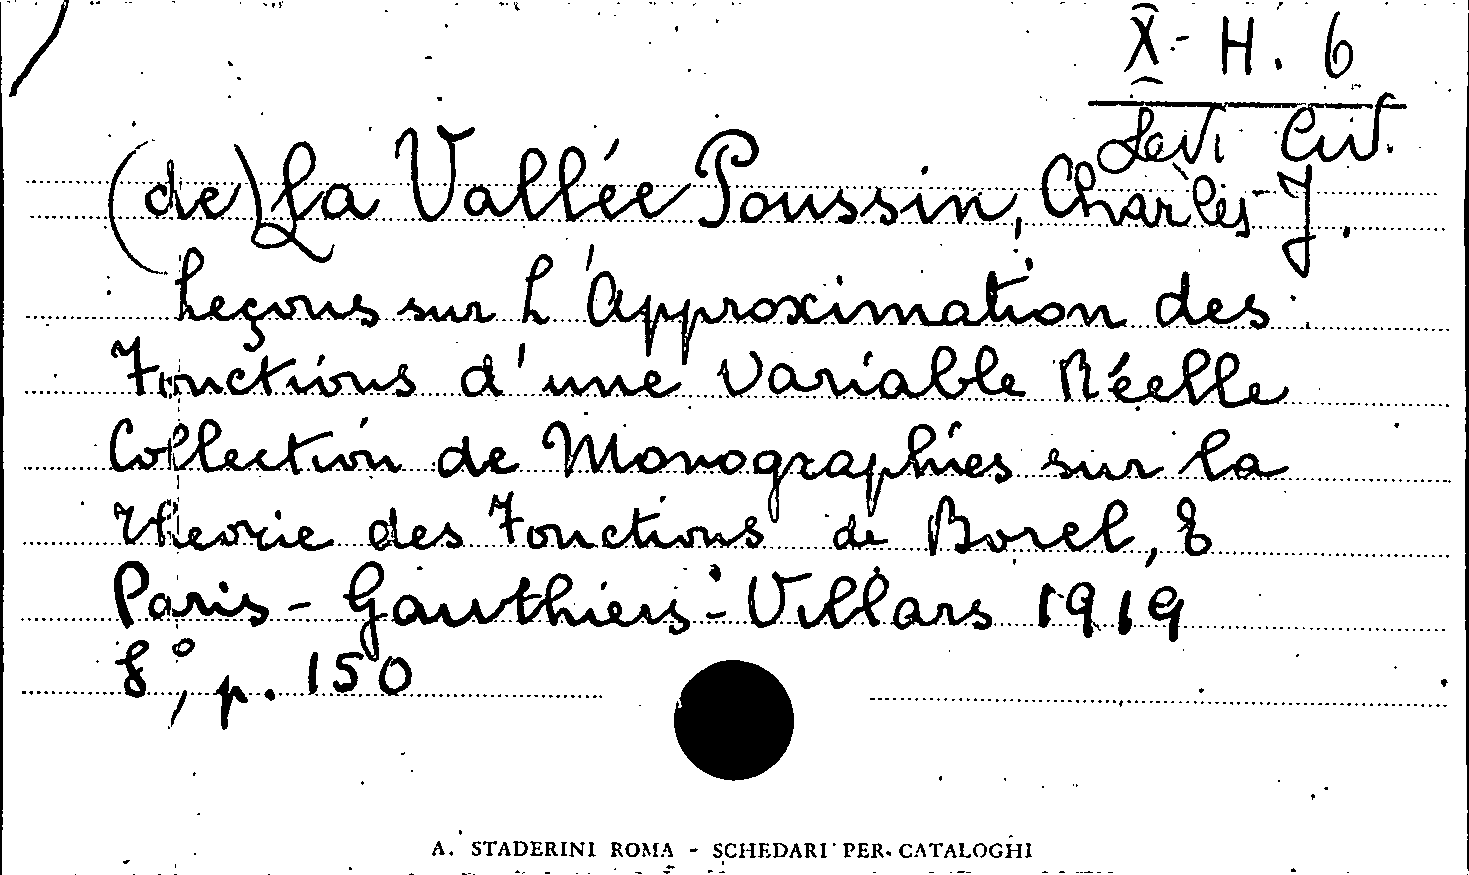 X - H. 6
Levi Civ.
(de) La Vallée Poussin, Charles J.
Leçons sur L'Approximation des
Fonctions d'une Variable Réelle
Collection de Monographies sur la
Theorie des Fonctions de Borel, E
Paris - Gauthiers-Villars 1919
8°, p. 150
A. STADERINI ROMA - SCHEDARI PER CATALOGHI